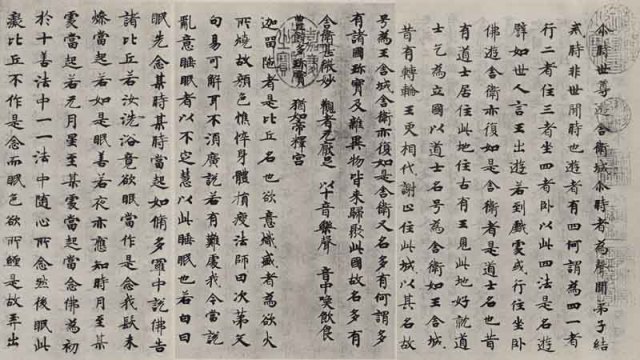 尒時世尊遊舍衛城尒時者為聲聞弟子結
戒時非世間時也遊者有四何謂為四一者
行二者住三者坐四者卧以此四法是名遊
譬如世人言王出遊若到戲處或行住坐卧
佛遊舍衛亦復如是舍衛者是道士名也昔
有道士居住此地往古有王見此地好就道
士乞為立國以道士名号為舍衛如王舍城
昔有轉輪王更相代謝止住此城以其名故
号為王舍城舍衛亦復如是舍衛又名多有何謂多
有諸國珎寶及雜異物皆来歸聚此國故名多有
舍衛甚微妙 觀者无厭足 以十音樂聲 音中喚飲食
豊饒多珎寶 猶如帝釋宮
迦留陁者是比丘名也欲意熾盛者為欲火
所燒故顏色憔悴身體損瘦法師曰次第文
句易可解耳不湏廣說若有難處我今當說
亂意睡眠者以不定慧以此睡眠也若白日
眠先念某時某時當起如脩多羅中說佛告
諸比丘若汝洗浴竟欲眠當作是念我髮未
燥當起若如是眠善若夜亦應知時月至某
處當起若无月星至某處當起當念佛為初
於十善法中一一法中隨心所念然後眠此
癡比丘不作是念而眠也欲所經是故弄出